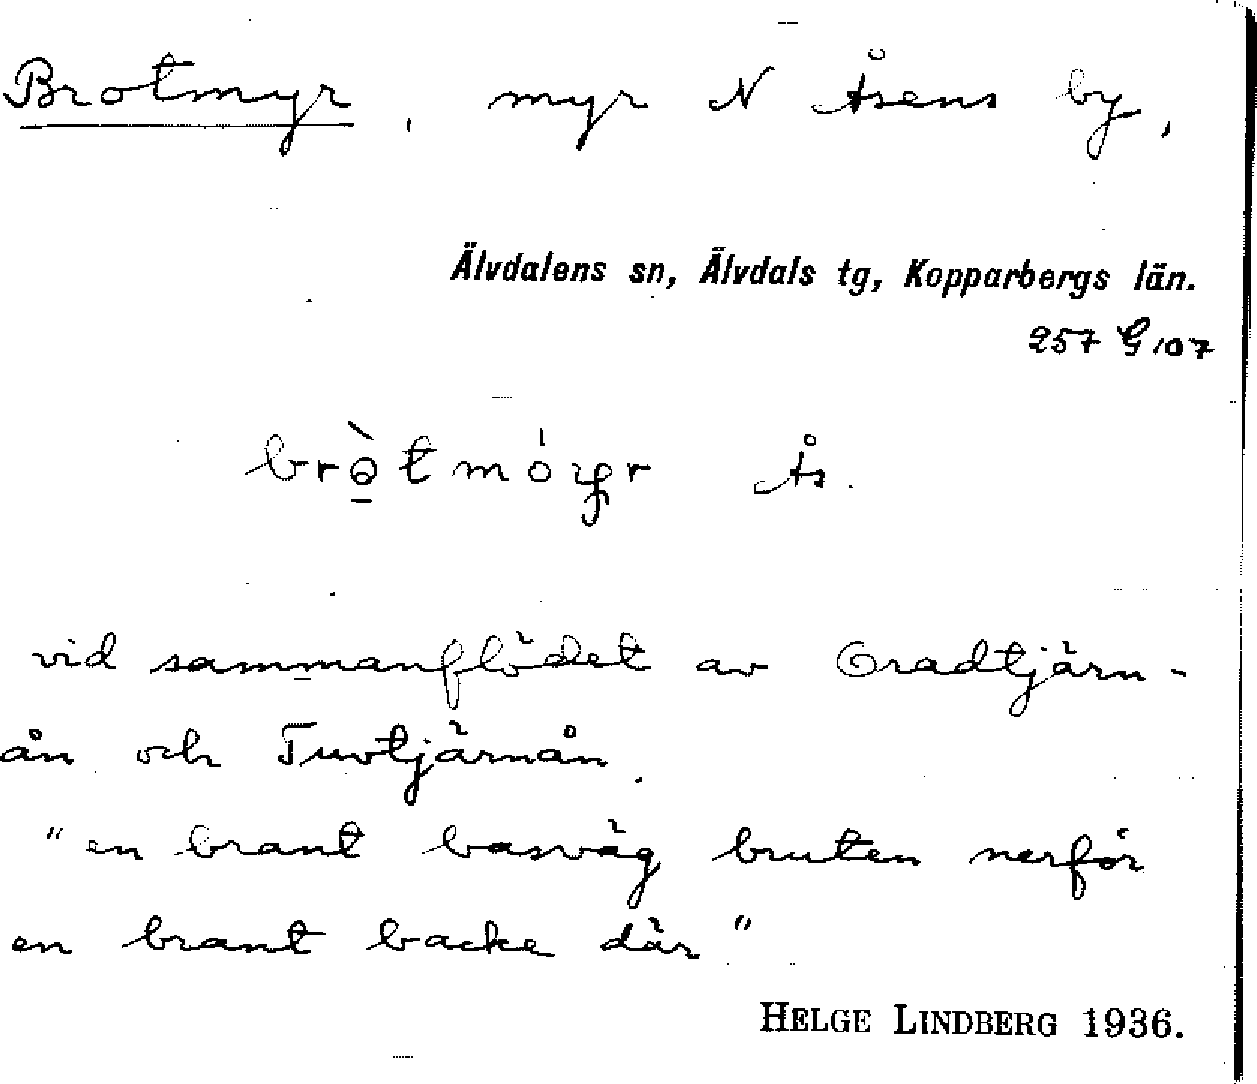 Brotmyr, myr N Åsens by,
Älvdalens sn, Älvdals tg, Kopparbergs län.
257 G 107
Ås.
vid sammanflödet av Gradtjärn-
ån och Tuvtjärnån.
"en brant basväg bruten nerför
en brant backe där"
HELGE LINDBERG 1936.